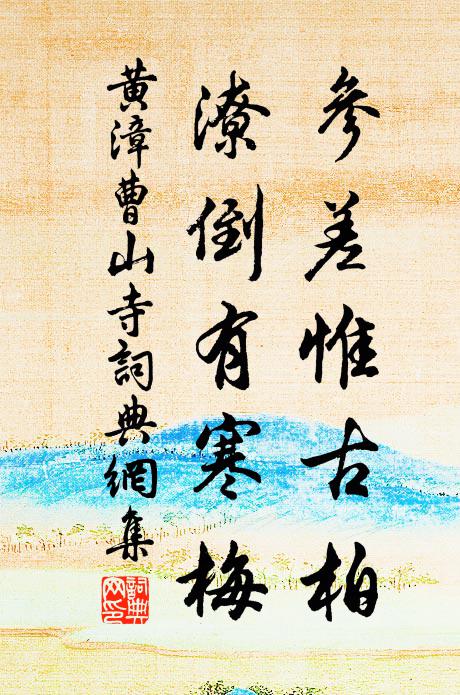 參差惟古柏
潦倒有寒梅
黃漳曹山寺詞典網集
詞典網印